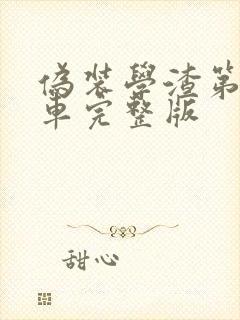 偽裝學渣第
車完整版
甜心